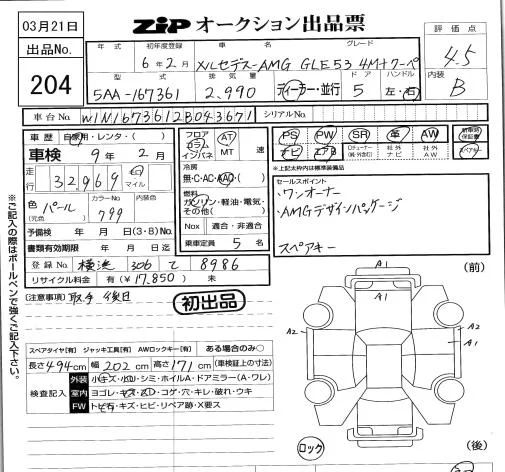 03月21日
ZIP オークション出品票
出品No.
204
年式 初年度登録 車名 グレード
6年2月 メルセデス-AMG GLE53 4M+クーペ
型式 排気量 ドア ハンドル
5AA-167361 2,990 ディーラー・並行 5 左・右
評価点
4.5
内装
B
車台No. W1N1673612B043671 シリアルNo.
車歴 自家用・レンタ・( )
車検 9年2月
走行 32,969 キロ マイル
色(元色) パール カラーNo. 799 内装色
予備検 年 月 日(3・8)No.
書類有効期限 年 月 日迄
登録No. 横浜 306 て 8986
リサイクル料金 有(¥17,850) 無
フロア コラム インパネ AT MT 速
冷房
無・C・AC・AAC・( )
燃料
ガソリン・軽油・電気・その他( )
Nox 適合・非適合
乗車定員 5 名
PS PW SR 革 AW 新車時保証書
ナビ エアB 社外ナビ 社外AW
※上記太枠内は標準装備品
セールスポイント
・ワンオーナー
・AMGデザインパッケージ
スペアキー
※ご記入の際はボールペンで強くご記入下さい。
[注意事項] 取手 後日
初出品
スペアタイヤ[有] ジャッキ工具[有] AWロックキー[有] ある場合のみ○
長さ494cm 幅202cm 高さ171cm (車検証上の寸法)
検査記入
外装 小キズ・小凹・シミ・ホイルA・ドアミラー(A・ワレ)
室内 ヨゴレ・キズ・スレ・コゲ・穴・キレ・破れ・ウキ
FW トビ石・キズ・ヒビ・リペア跡・X要ス
(前)
A1
A1
A2
A2
A1
ロック
(後)